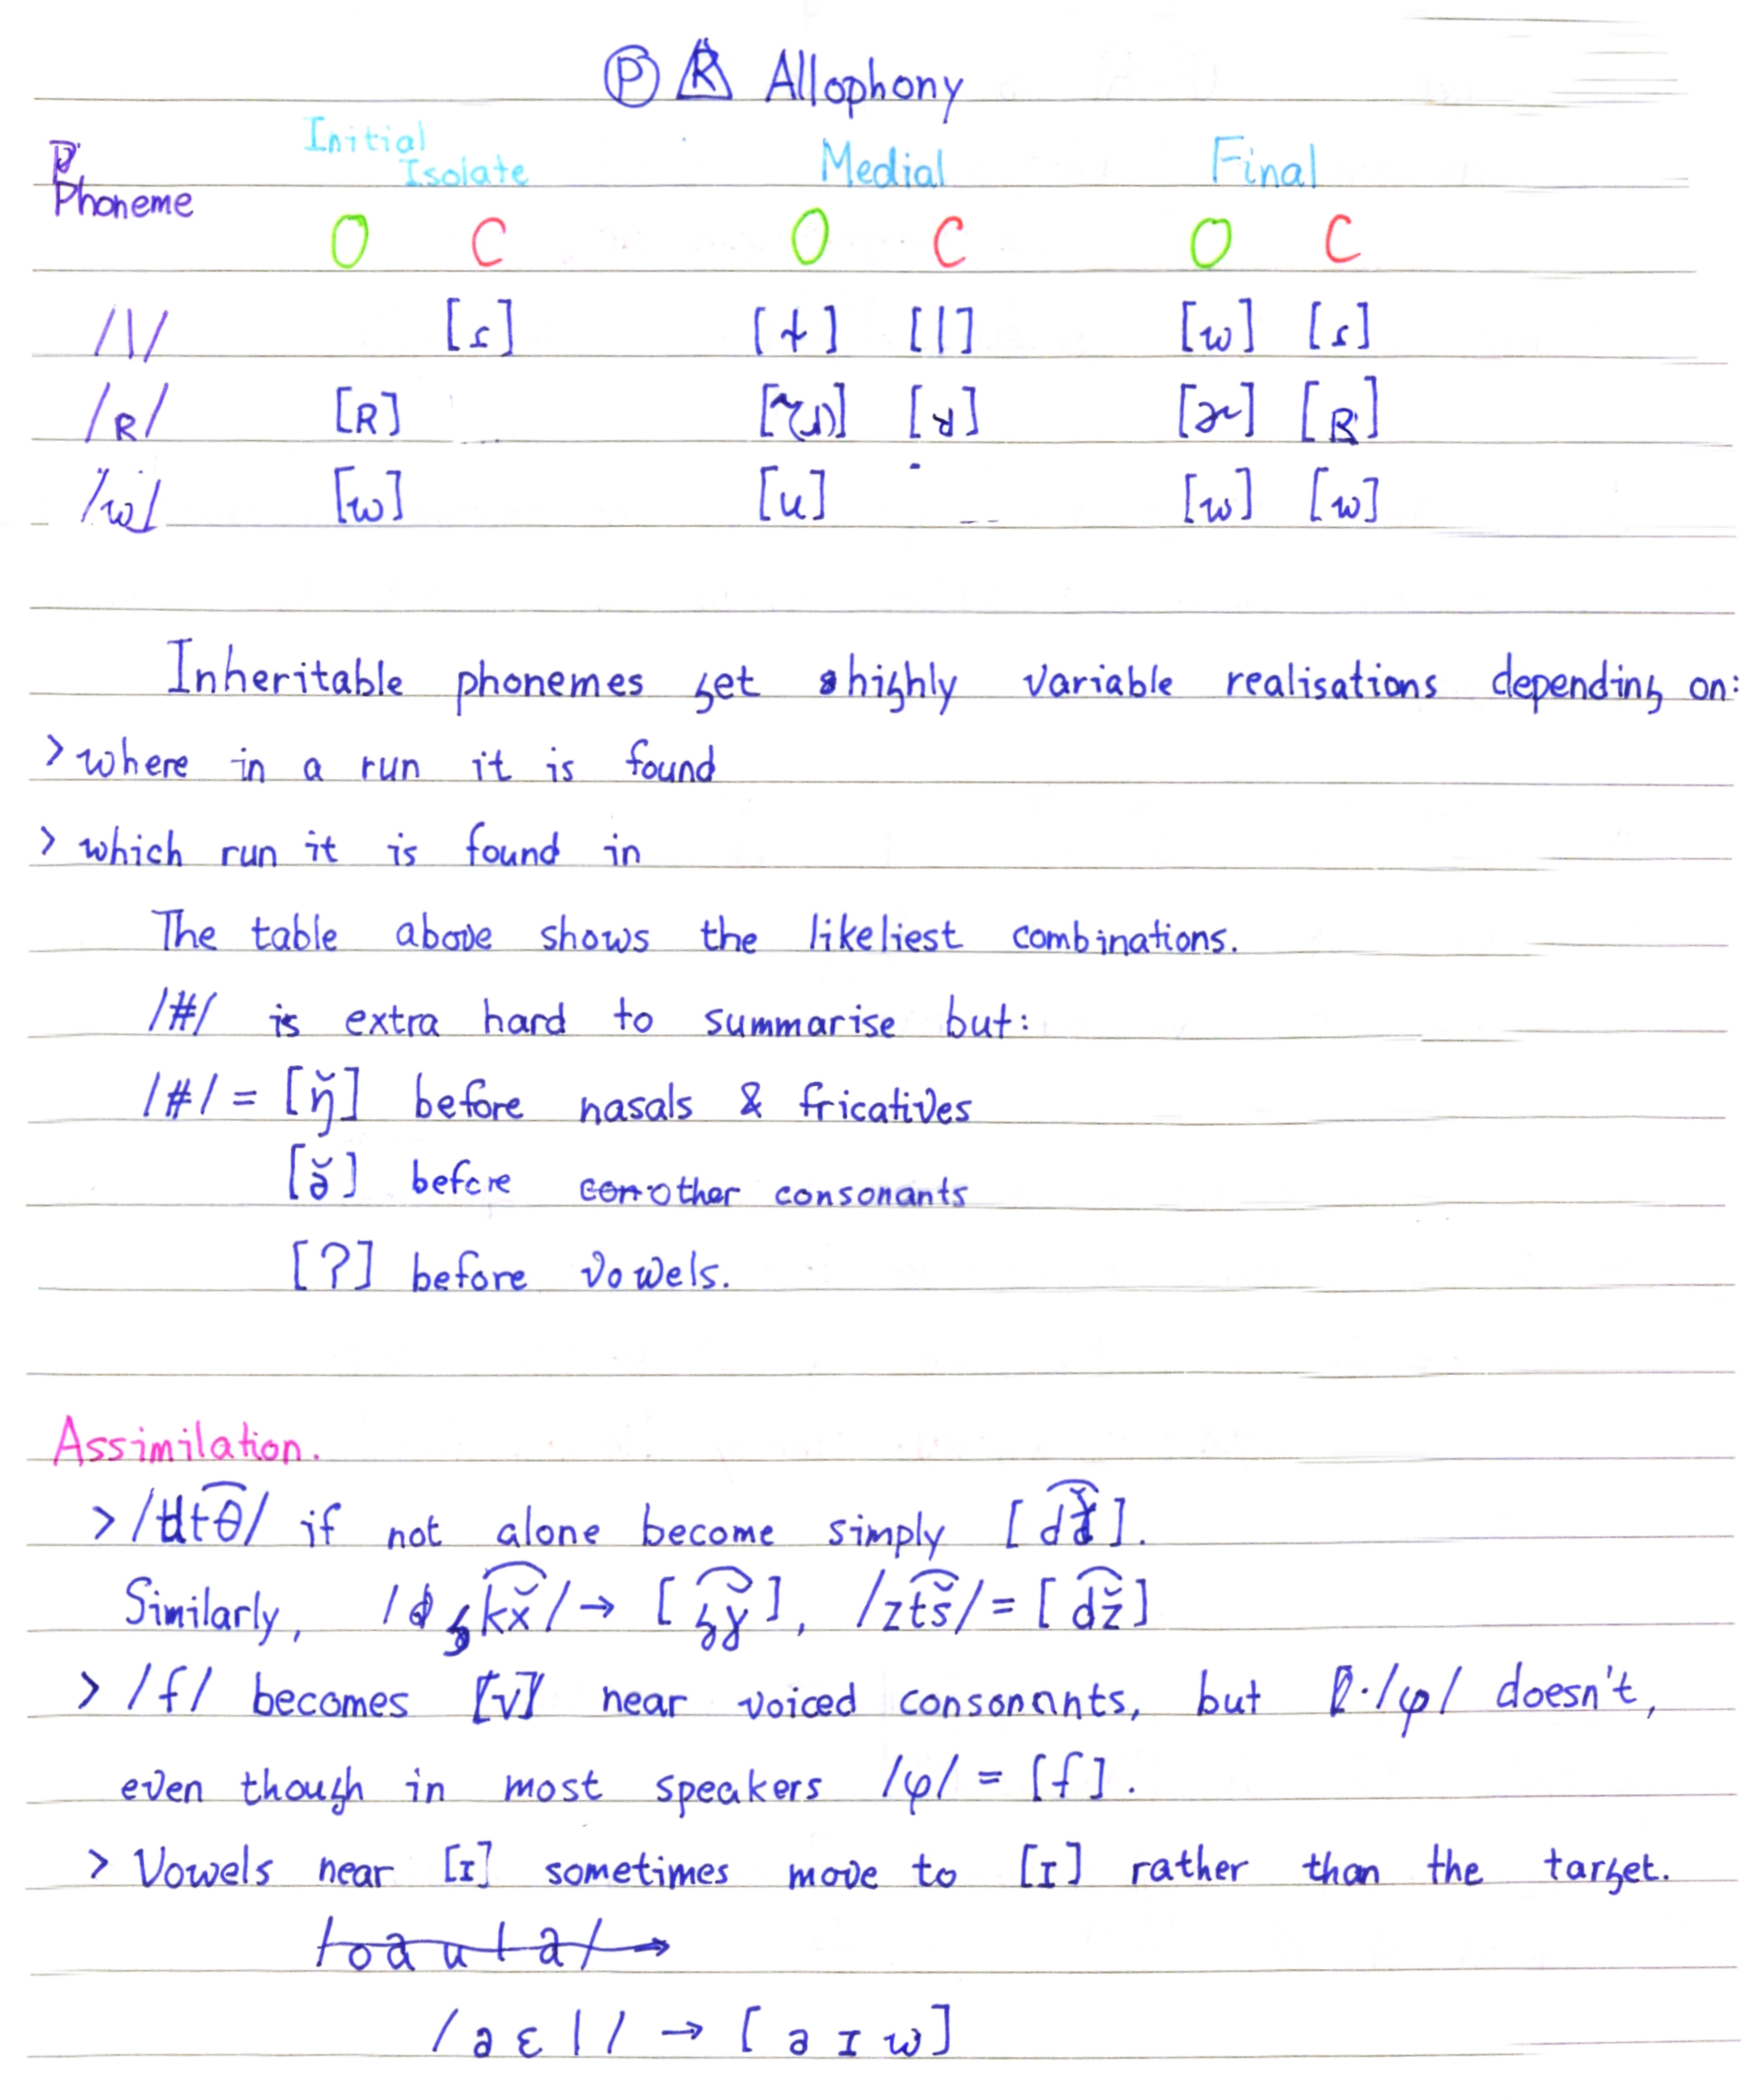 Ⓟ R Allophony
Initial
Isolate Medial Final
Phoneme
O C O C O C
/l/ [ɾ] [ɫ] [l] [w] [ɾ]
/R/ [R] [ɚ] [R]
/w/ [w] [u] [w] [w]
Inheritable phonemes get highly variable realisations depending on:
> where in a run it is found
> which run it is found in
The table above shows the likeliest combinations.
/#/ is extra hard to summarise but:
/#/ = [ŋ̆] before nasals & fricatives
[ə̆] before other consonants
[ʔ] before vowels.
Assimilation.
> if not alone become simply
Similarly, → , /zt͡s̆/ = [d͡z̆]
> /f/ becomes [v] near voiced consonants, but /φ/ doesn't,
even though in most speakers /φ/ = [f].
> Vowels near [ɪ] sometimes move to [ɪ] rather than the target.
/əɛl/ → [əɪw]